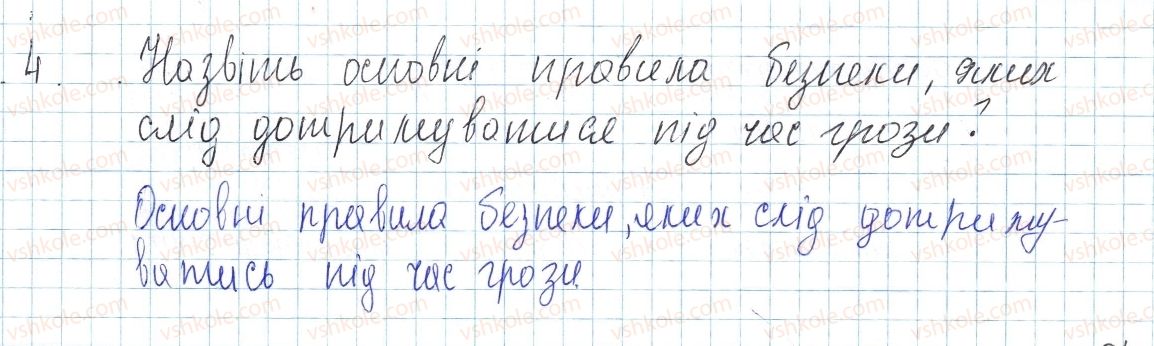 4. Назвіть основні правила безпеки, яких
слід дотримуватися під час грози?
Основні правила безпеки, яких слід дотриму-
ватись під час грози.